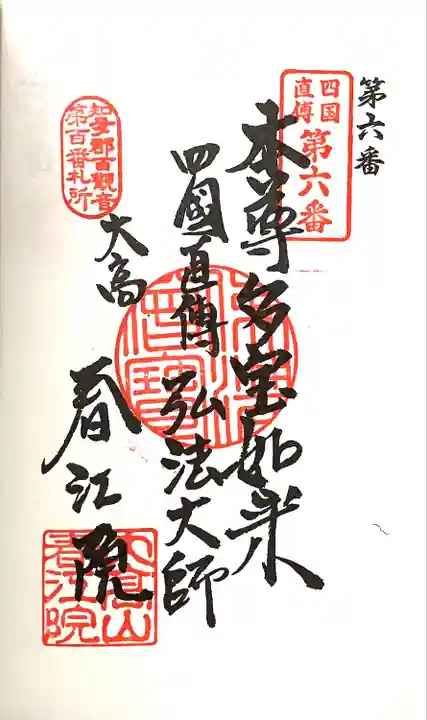 第六番
四国
直傳
第六番
本尊多宝如来
四國直傳 弘法大師
知多郡百觀音
第百番札所
大高
春江院
大高山
春江院